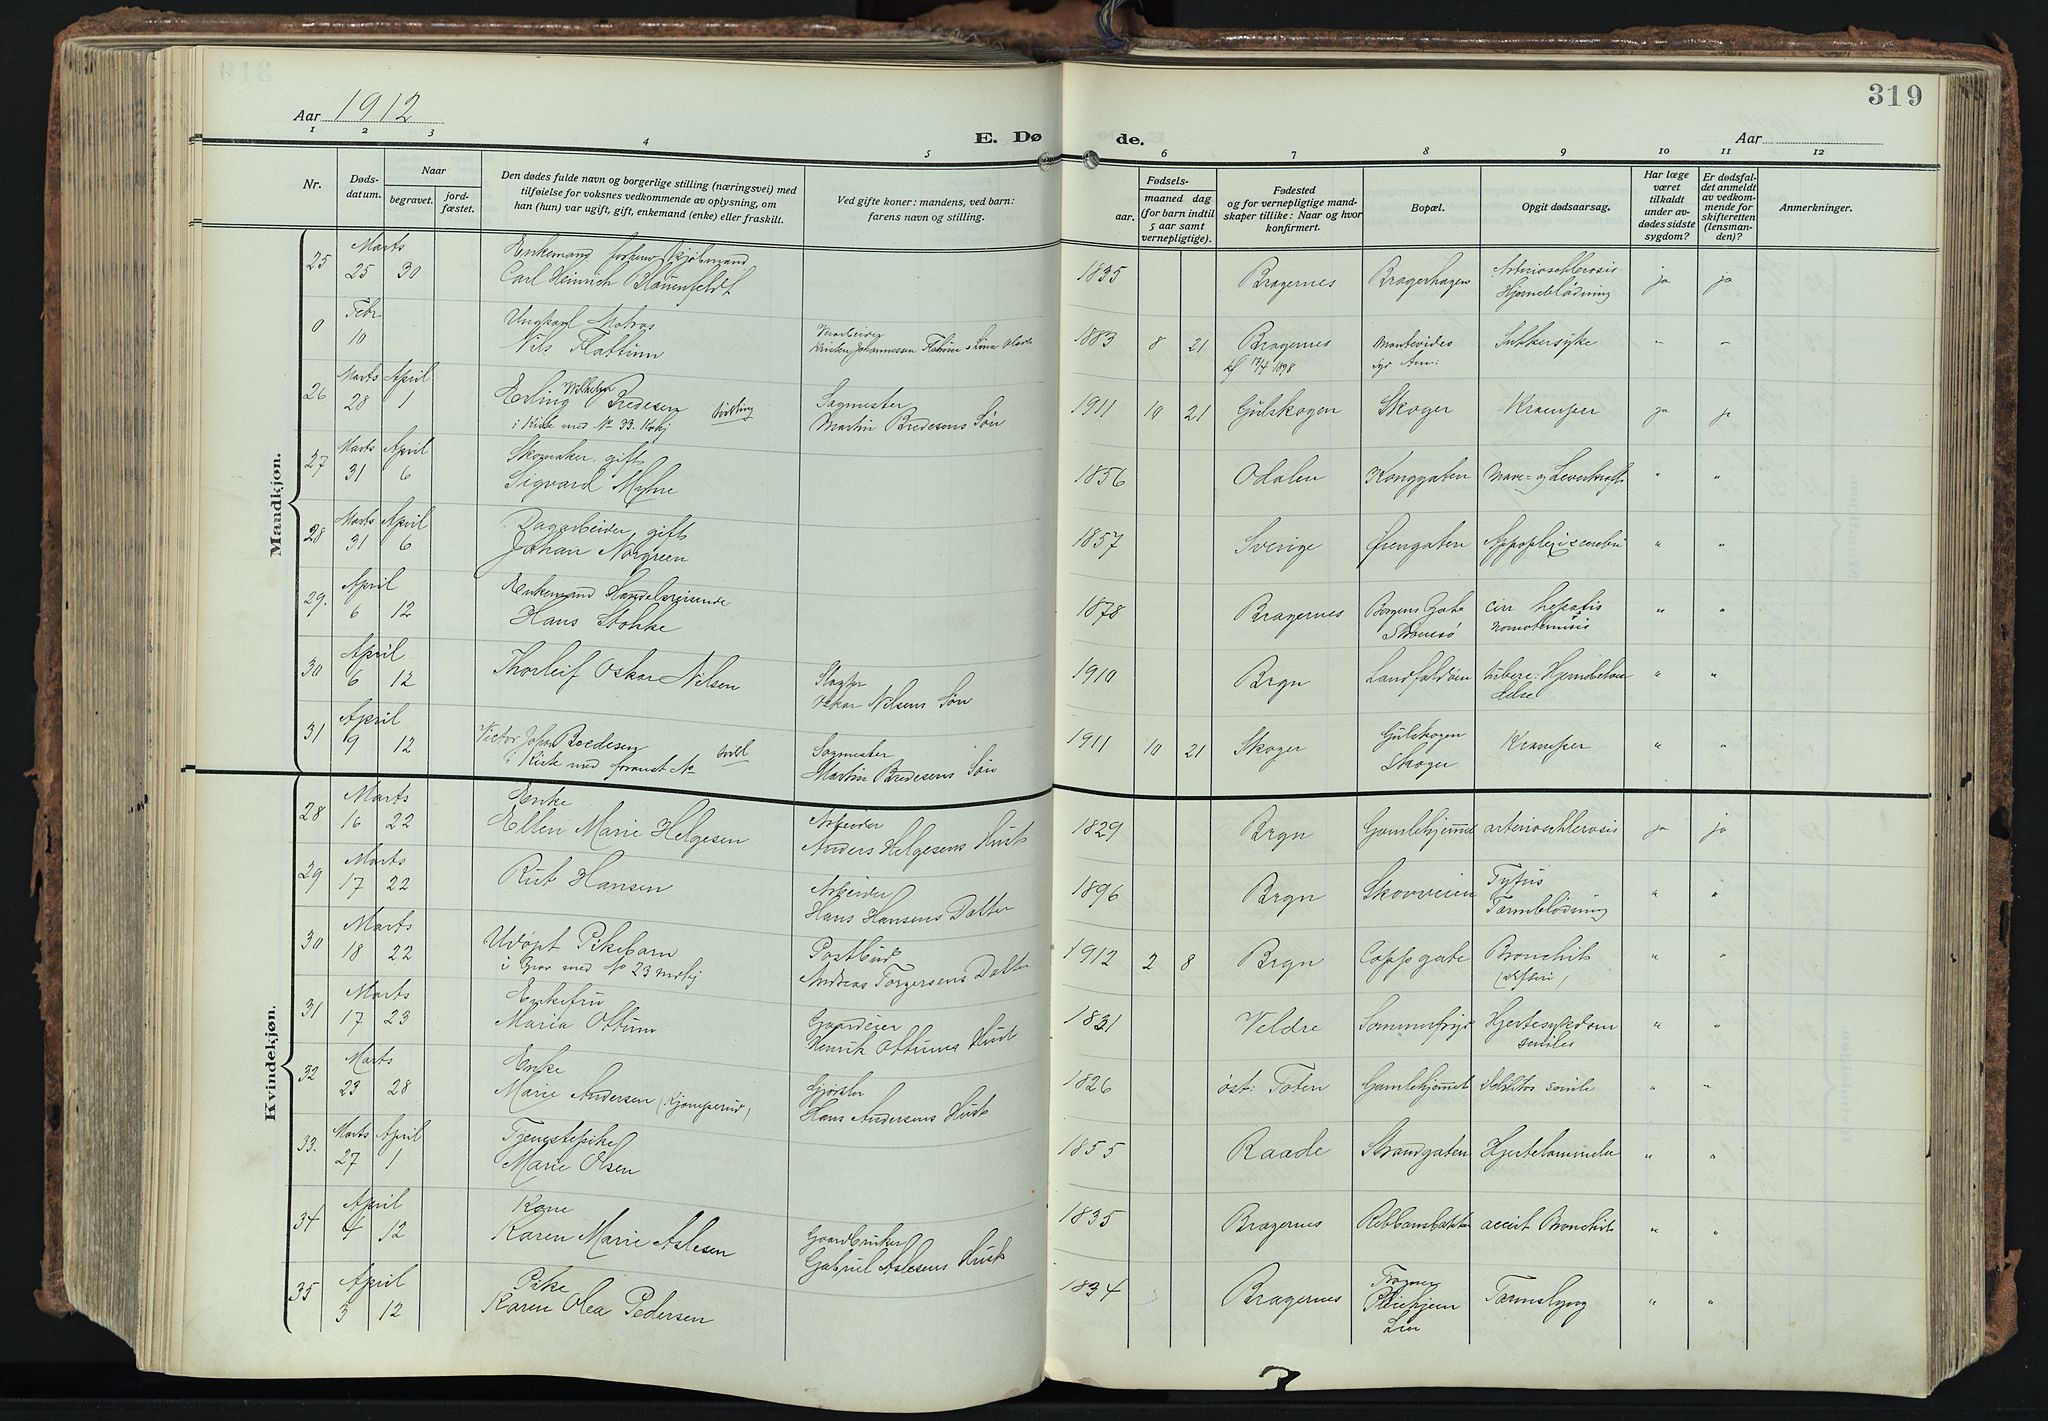 319
Aar 1912
E. Dø de.
Aar
1 2 3 4 5 6 7 8 9 10 11 12
Nr.
Døds-
datum.
Naar
begravet.
jord-
fæstet.
Den dødes fulde navn og borgerlige stilling (næringsvei) med
tilføielse for voksnes vedkommende av oplysning, om
han (hun) var ugift, gift, enkemand (enke) eller fraskilt.
Ved gifte koner: mandens, ved barn:
farens navn og stilling.
Fødsels-
aar. maaned dag
(for barn indtil
5 aar samt
vernepligtige).
Fødested
og for vernepligtige mand-
skaper tillike: Naar og hvor
konfirmert.
Bopæl.
Opgit dødsaarsag.
Har læge
været
tilkaldt
under av-
dødes sidste
sygdom?
Er dødsfal-
det anmeldt
av vedkom-
mende for
skifteretten
(lensman-
den)?
Anmerkninger.
Mandkjøn.
25 Marts 25 30 Enkemand forhenv. Kjøbmand
Carl Heinrich 1835 Bragernes Bragerhagen Arteriosclerosis
Hjerneblødning ja ja
0 Febr 10 Ungkarl Matros
Nils Flattum 1883 8 21 Bragernes Montevideo Sukkersyke
1898
26 Marts 28 April 1 Erling Wilhelm Bredesen tvilling Sagmester 1911 10 21 Gulskogen Skoger Kramper ja ja
i Kiste med No 33. Kvkj Martin Bredesens Søn
27 Marts 31 April 6 Skomaker, gift
Sigvard Myhre 1856 Odalen Konggaten Mave- og Leverkræft " "
28 Marts 31 April 6 Dagarbeider, gift
Johan Norgreen 1857 Sverige Øvregaten Appoplexis cerebri " "
29. April 6 12 Enkemand Handelsreisende
Hans Stokke 1878 Bragernes Borgens Gate cirr hepatis " "
Strømsø
30 April 6 12 Thorleif Oskar Nilsen Slagter 1910 Brgn Landfaldøen " "
Oskar Nilsens Søn
31 April 9 12 Victor Johan Bredesen tvill Sagmester 1911 10 21 Skoger Gulskogen Kramper " "
i Kiste med Martin Bredesens Søn Skoger
Kvindekjøn.
28 Marts 16 22 Enke Arbeider
Ellen Marie Helgesen Anders Helgesens Hust 1829 Brgn Gamlehjemmet arteriosclerosis ja ja
29 Marts 17 22 Rut Hansen Arbeider 1896 Brgn Skovveien Tyfus " "
Hans Hansens Datter Tarmblødning
30 Marts 18 22 Udøpt Pikebarn Postbud 1912 2 8 Brgn Coppsgate Bronchit " "
i Grav med No 23 Mdkj Andreas Torgersens Datter
31 Marts 17 23 Enkefru Gaardeier
Maria Ottum Henrik Ottums Hust 1831 Veldre Sommerfryd Hjertesykdom " "
seniles
32 Marts 23 28 Enke
Marie Andersen (Kjomperud) Hans Andersens Hust 1826 Øst: Toten Gamlehjemmet senile " "
33. Marts 27 April 1 Tjenestepike
Marie Olsen 1855 Raade Strandgaten Hjertelammelse " "
34 April 4 12 Kone Gaardbruker
Karen Marie Aslesen Gabriel Aslesens Hust 1835 Bragernes acut Bronchit " "
35 April 3 12 Pike
Karen Olea Pedersen 1834 Bragernes Pleiehjem Tarmslyng " "
Lier